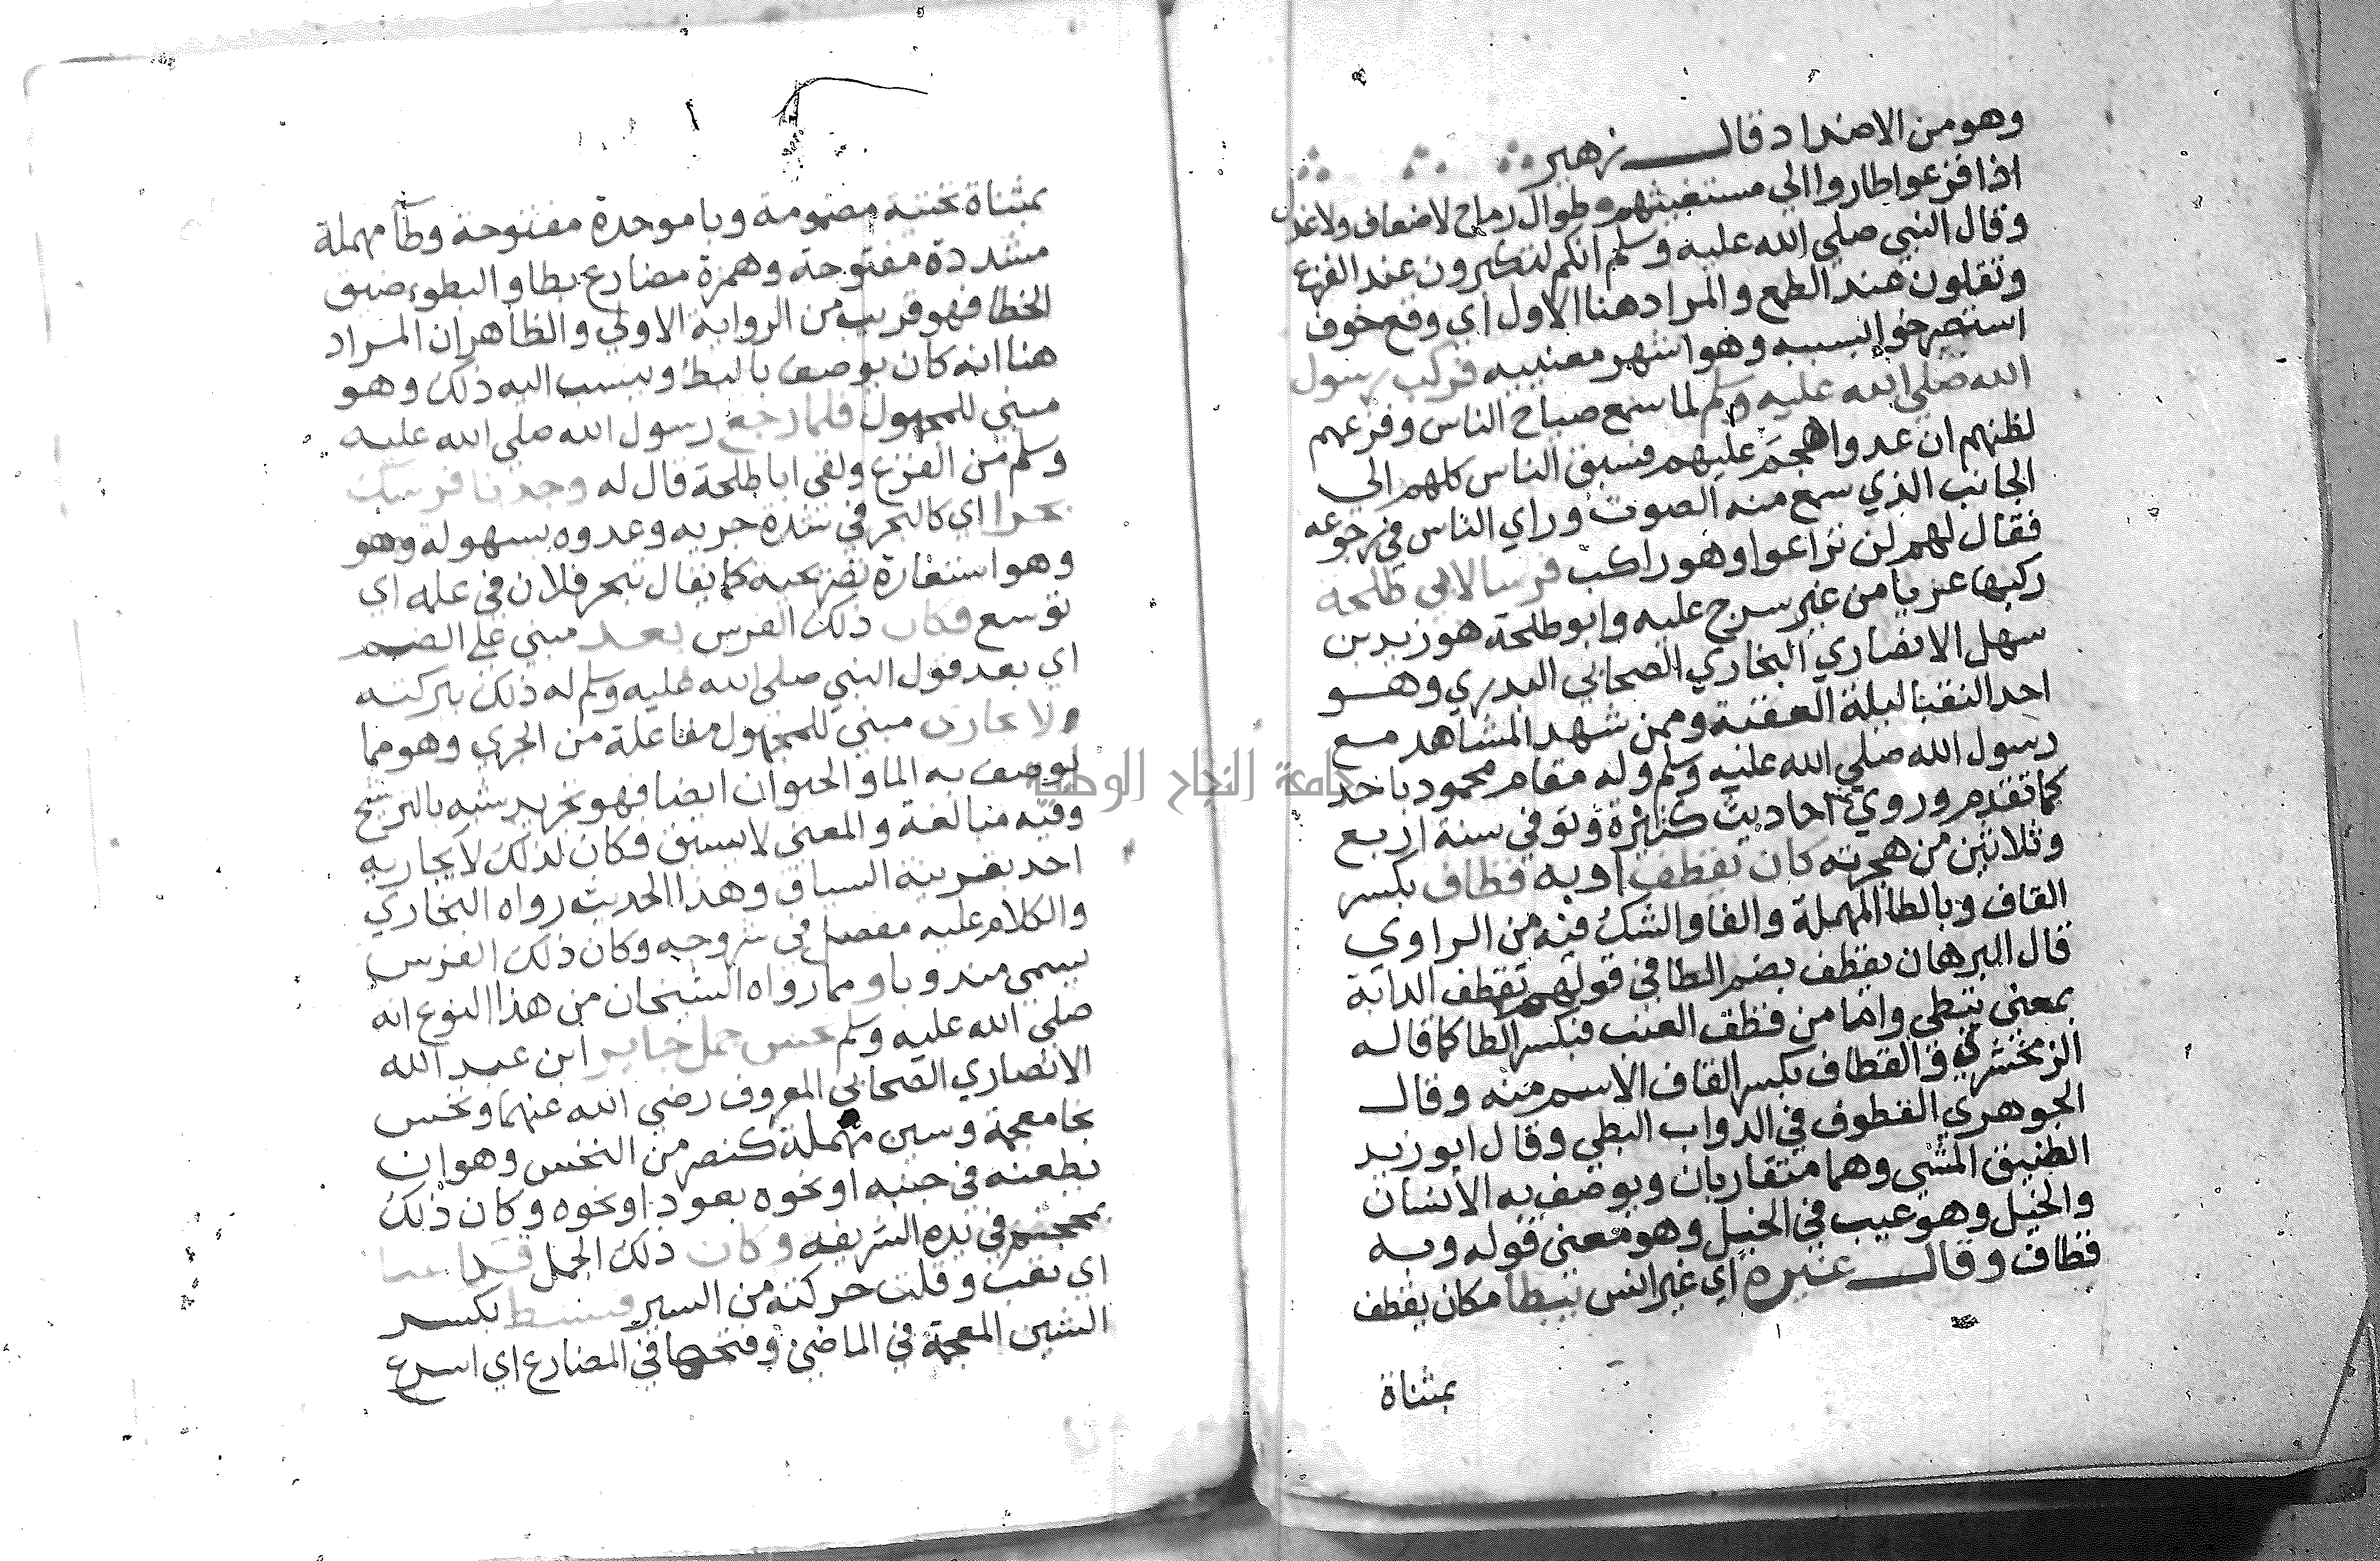 وهو من الاضداد قال زهير
اذا فزعوا طاروا الي مستغيثهم وطوال رماح لا ضعاف ولا عزل
وقال النبي صلي الله عليه وسلم انكم لتكثرون عند الفزع
وتقلون عند الطمع والمراد هنا الاول اي وقع خوف
استصرخوا بسببه وهو اشهر معنييه فركب رسول
الله صلي الله عليه وسلم لما سمع صياح الناس وفزعهم
لظنهم ان عدوا هجم عليهم فسبق الناس كلهم الي
الجانب الذي سمع منه الصوت وراي الناس في رجوعه
فقال لهم لن تراعوا وهو راكب فرسا لابي طلحة
ركبها عريا من غير سرج عليه وابو طلحة هو زيد بن
سهل الانصاري البخاري الصحابي البدري وهو
احد النقبا ليلة العقبة وممن شهد المشاهد مع
رسول الله صلي الله عليه وسلم وله مقام محمود باحد
كما تقدم وروي احاديث كثيرة وتوفي سنة اربع
وثلاثين من هجرته كان يقطف او به قطاف بكسر
القاف وبالطا المهملة والفا والشك فيه من الراوي
قال البرهان يقطف بضم الطا في قولهم تقطف الدابة
بمعني تبطي واما من قطف العنب فبكسر الطا كما قاله
الزمخشري والقطاف بكسر القاف الاسم منه وقال
الجوهري القطوف في الدواب البطي وقال ابو زيد
الضيق المشي وهما متقاربان ويوصف به الانسان
والخيل وهو عيب في الخيل وهو معني قوله وبه
قطاف وقال غيره اي غير انس يبطا مكان يقطف
بمثناة
بمثناة تحتية مضمومة وبا موحدة مفتوحة وطآ مهملة
مشددة مفتوحة وهمزة مضارع بطا والبطوء ضيق
الخطا فهو قريب من الرواية الاولي والظاهر ان المراد
هنا انه كان يوصف بالبطء وينسب اليه ذلك وهو
مبني للمجهول فلما رجع رسول الله صلي الله عليه
وسلم من الفزع ولقي ابا طلحة قال له وجدنا فرسك
بحرا اي كالبحر في شدة جريه وعدوه بسهولة وهو
وهو استعارة تصريحية كما يقال تبحر فلان في علمه اي
توسع فكان ذلك الفرس بعد مبني علي الضم
اي بعد قول النبي صلي الله عليه وسلم له ذلك ببركته
ولا يجاري مبني للمجهول مفاعلة من الجري وهو مما
يوصف به الما والحيوان ايضا فهو تجريد شبه بالترشيح
وفيه مبالغة والمعني لا يسبق فكان لذلك لا يجاريه
احد بقرينة السياق وهذا الحديث رواه البخاري
والكلام عليه مفصل في شروحه وكان ذلك الفرس
يسمي مندوبا ومما رواه الشيخان من هذا النوع انه
صلي الله عليه وسلم نخس جمل جابر ابن عبد الله
الانصاري الصحابي المعروف رضي الله عنهما ونخس
بخا معجمة وسين مهملة كنصر من النخس وهو ان
يطعنه في جنبه او نحوه بعود او نحوه وكان ذلك
بمحجنه في يده الشريفه وكان ذلك الجمل قد اعيا
اي تعب وقلت حركته من السير فنشط بكسر
الشين المعجمة في الماضي وفتحها في المضارع اي اسرع
جامعة النجاح الوطنية